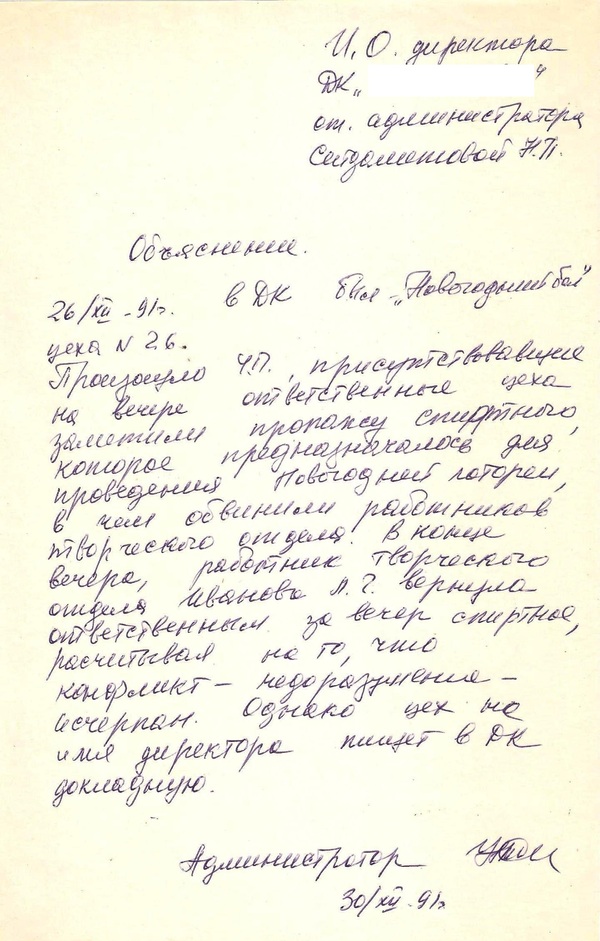 И.О. директора
ДК „ "
от администратора
Сейдаметовой Н.П.
Объяснение.
26/XII-91г. в ДК был „Новогодний бал"
цеха N 26.
Произошло Ч.П., присутствовавшие
на вечере ответственные цеха
заметили пропажу спиртного,
которое предназначалось для
проведения Новогодней лотереи,
в чем обвинили работников
творческого отдела. В конце
вечера, работник творческого
отдела Иванова Л.Г. вернула
ответственным за вечер спиртное,
расчитывая на то, что
конфликт - недоразумение -
исчерпан. Однако цех на
имя директора пишет в ДК
докладную.
Администратор
30/XII-91г.